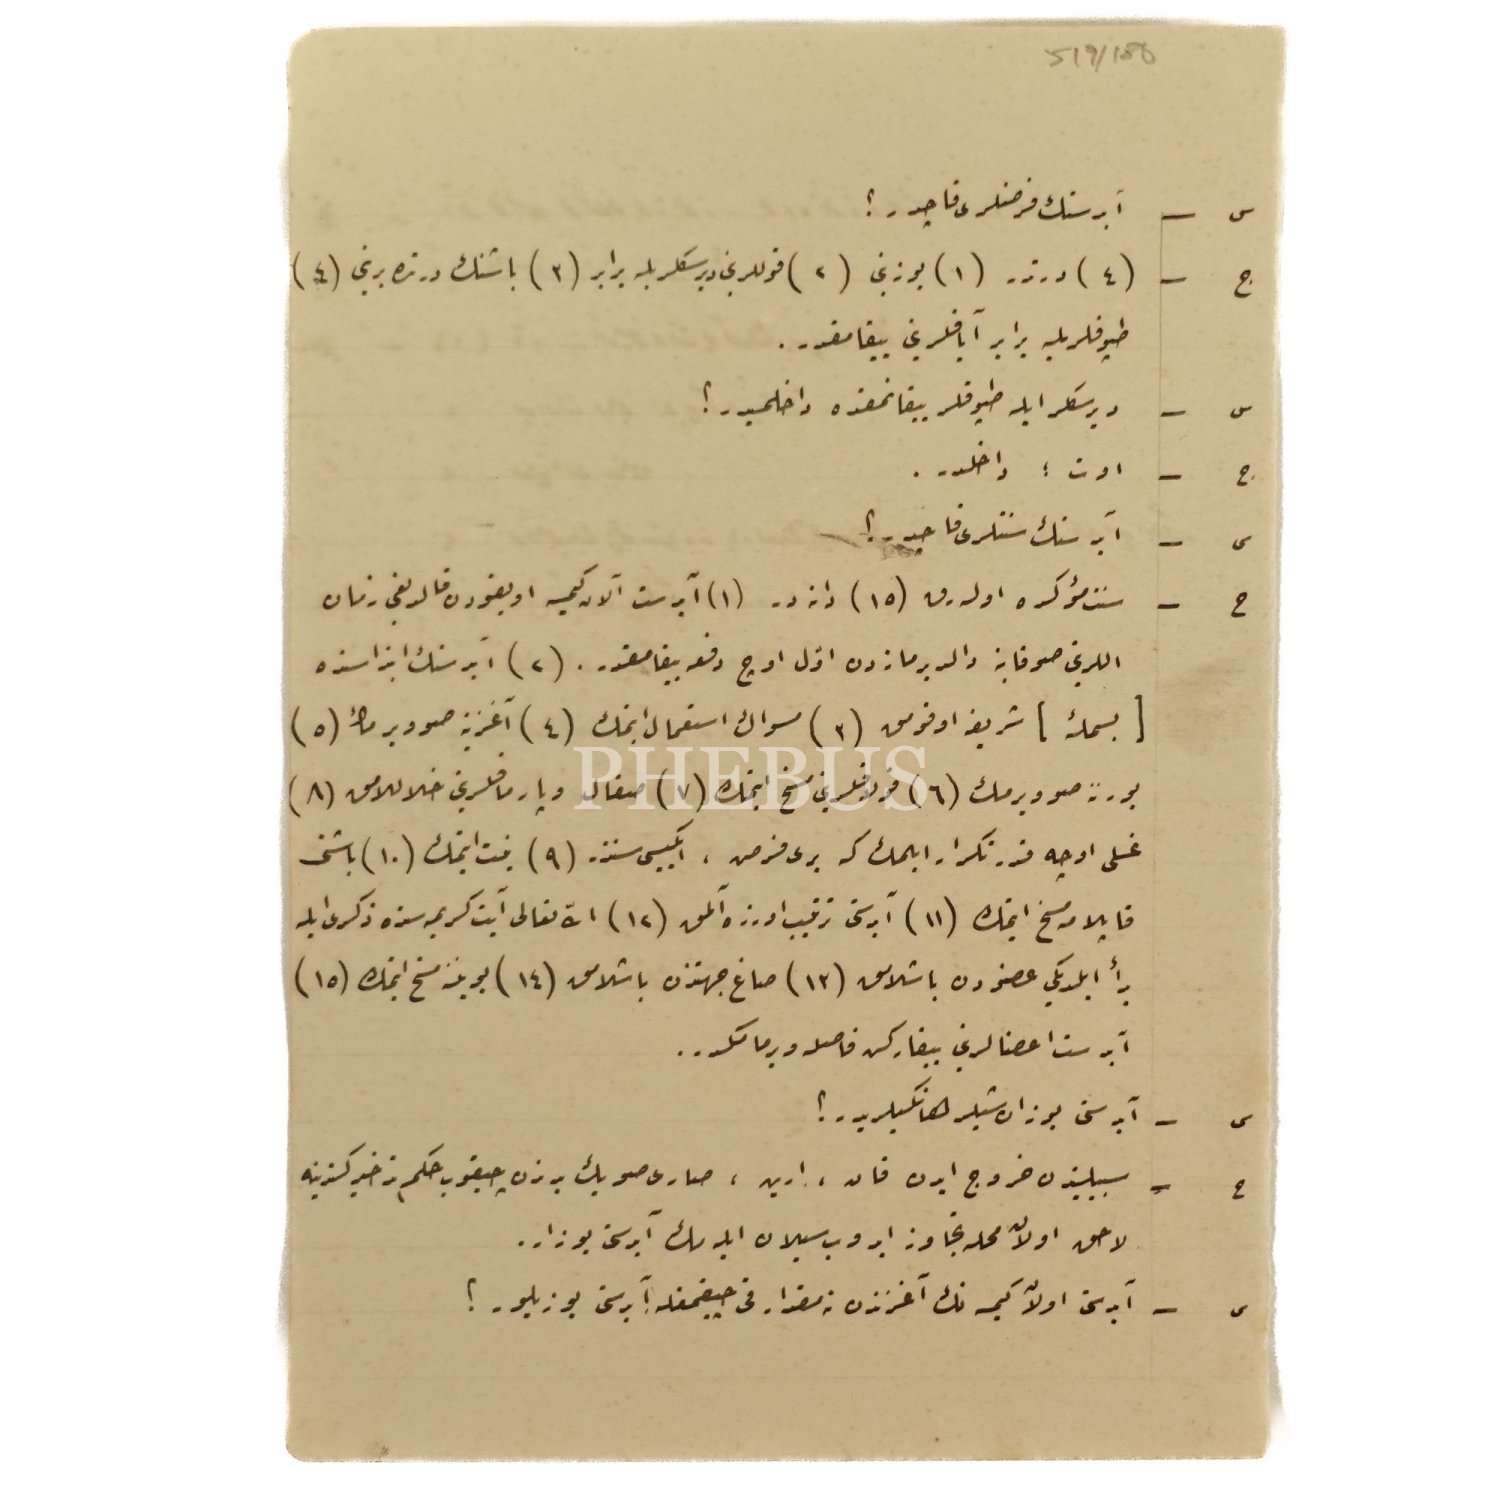 519/180
س — آبدستك فرضلری قاچدر ؟
ج — (٤) درتدر (١) یوزینی (٢) قوللرینی دیرسكلریله برابر (٣) باشنك درتده برینی (٤)
طوپقلریله برابر آیاقلرینی ییقامقدر .
س — دیرسكلر ایله طوپقلر ییقانمقده داخلمیدر ؟
ج — اوت ؛ داخلدر .
س — آبدستك سنتلری قاچدر ؟
ج — سنت مؤكده اوله رق (١٥) دانه در (١) آبدست آلان كیمسه اویقودن قالدیغی زمان
اللرینی صو قابنه والدیرمازدن اوّل اوچ دفعه ییقامقدر . (٢) آبدستك ابتداسنده
[ بسملهٔ ] شریفه اوقومق (٣) مسواك استعمال ایتمك (٤) آغزینه صو ویرمك (٥)
بورننه صو ویرمك (٦) قولاقلرینی مسح ایتمك (٧) صقالی وپارماقلرینی خلاللامق (٨)
غسلی اوچه قدر تكرار ایلمك كه بری فرض ، ایكیسی سنتدر (٩) نیت ایتمك (١٠) باشنی
قاپلامه مسح ایتمك (١١) آبدستی ترتیب اوزره آلمق (١٢) الله تعالی آیت كریمه سنده ذكری ایله
بدأ ایلدیكی عضودن باشلامق (١٣) صاغ جهتدن باشلامق (١٤) بویننی مسح ایتمك (١٥)
آبدست اعضالرینی ییقاركن فاصله ویرمامكدر .
س — آبدستی بوزان شیلر هانكیلریدر ؟
ج — سبیلیندن خروج ایدن قان ، ایرین ، صاری صو بدندن چیقوب حكم تطهیر كندینه
لاحق اولان محله تجاوز ایدوب سیلان ایله مك آبدستی بوزار .
س — آبدستی اولان كیمسه نك آغزندن نه مقدار قی چیقمغله آبدستی بوزیلور ؟
PHEBUS